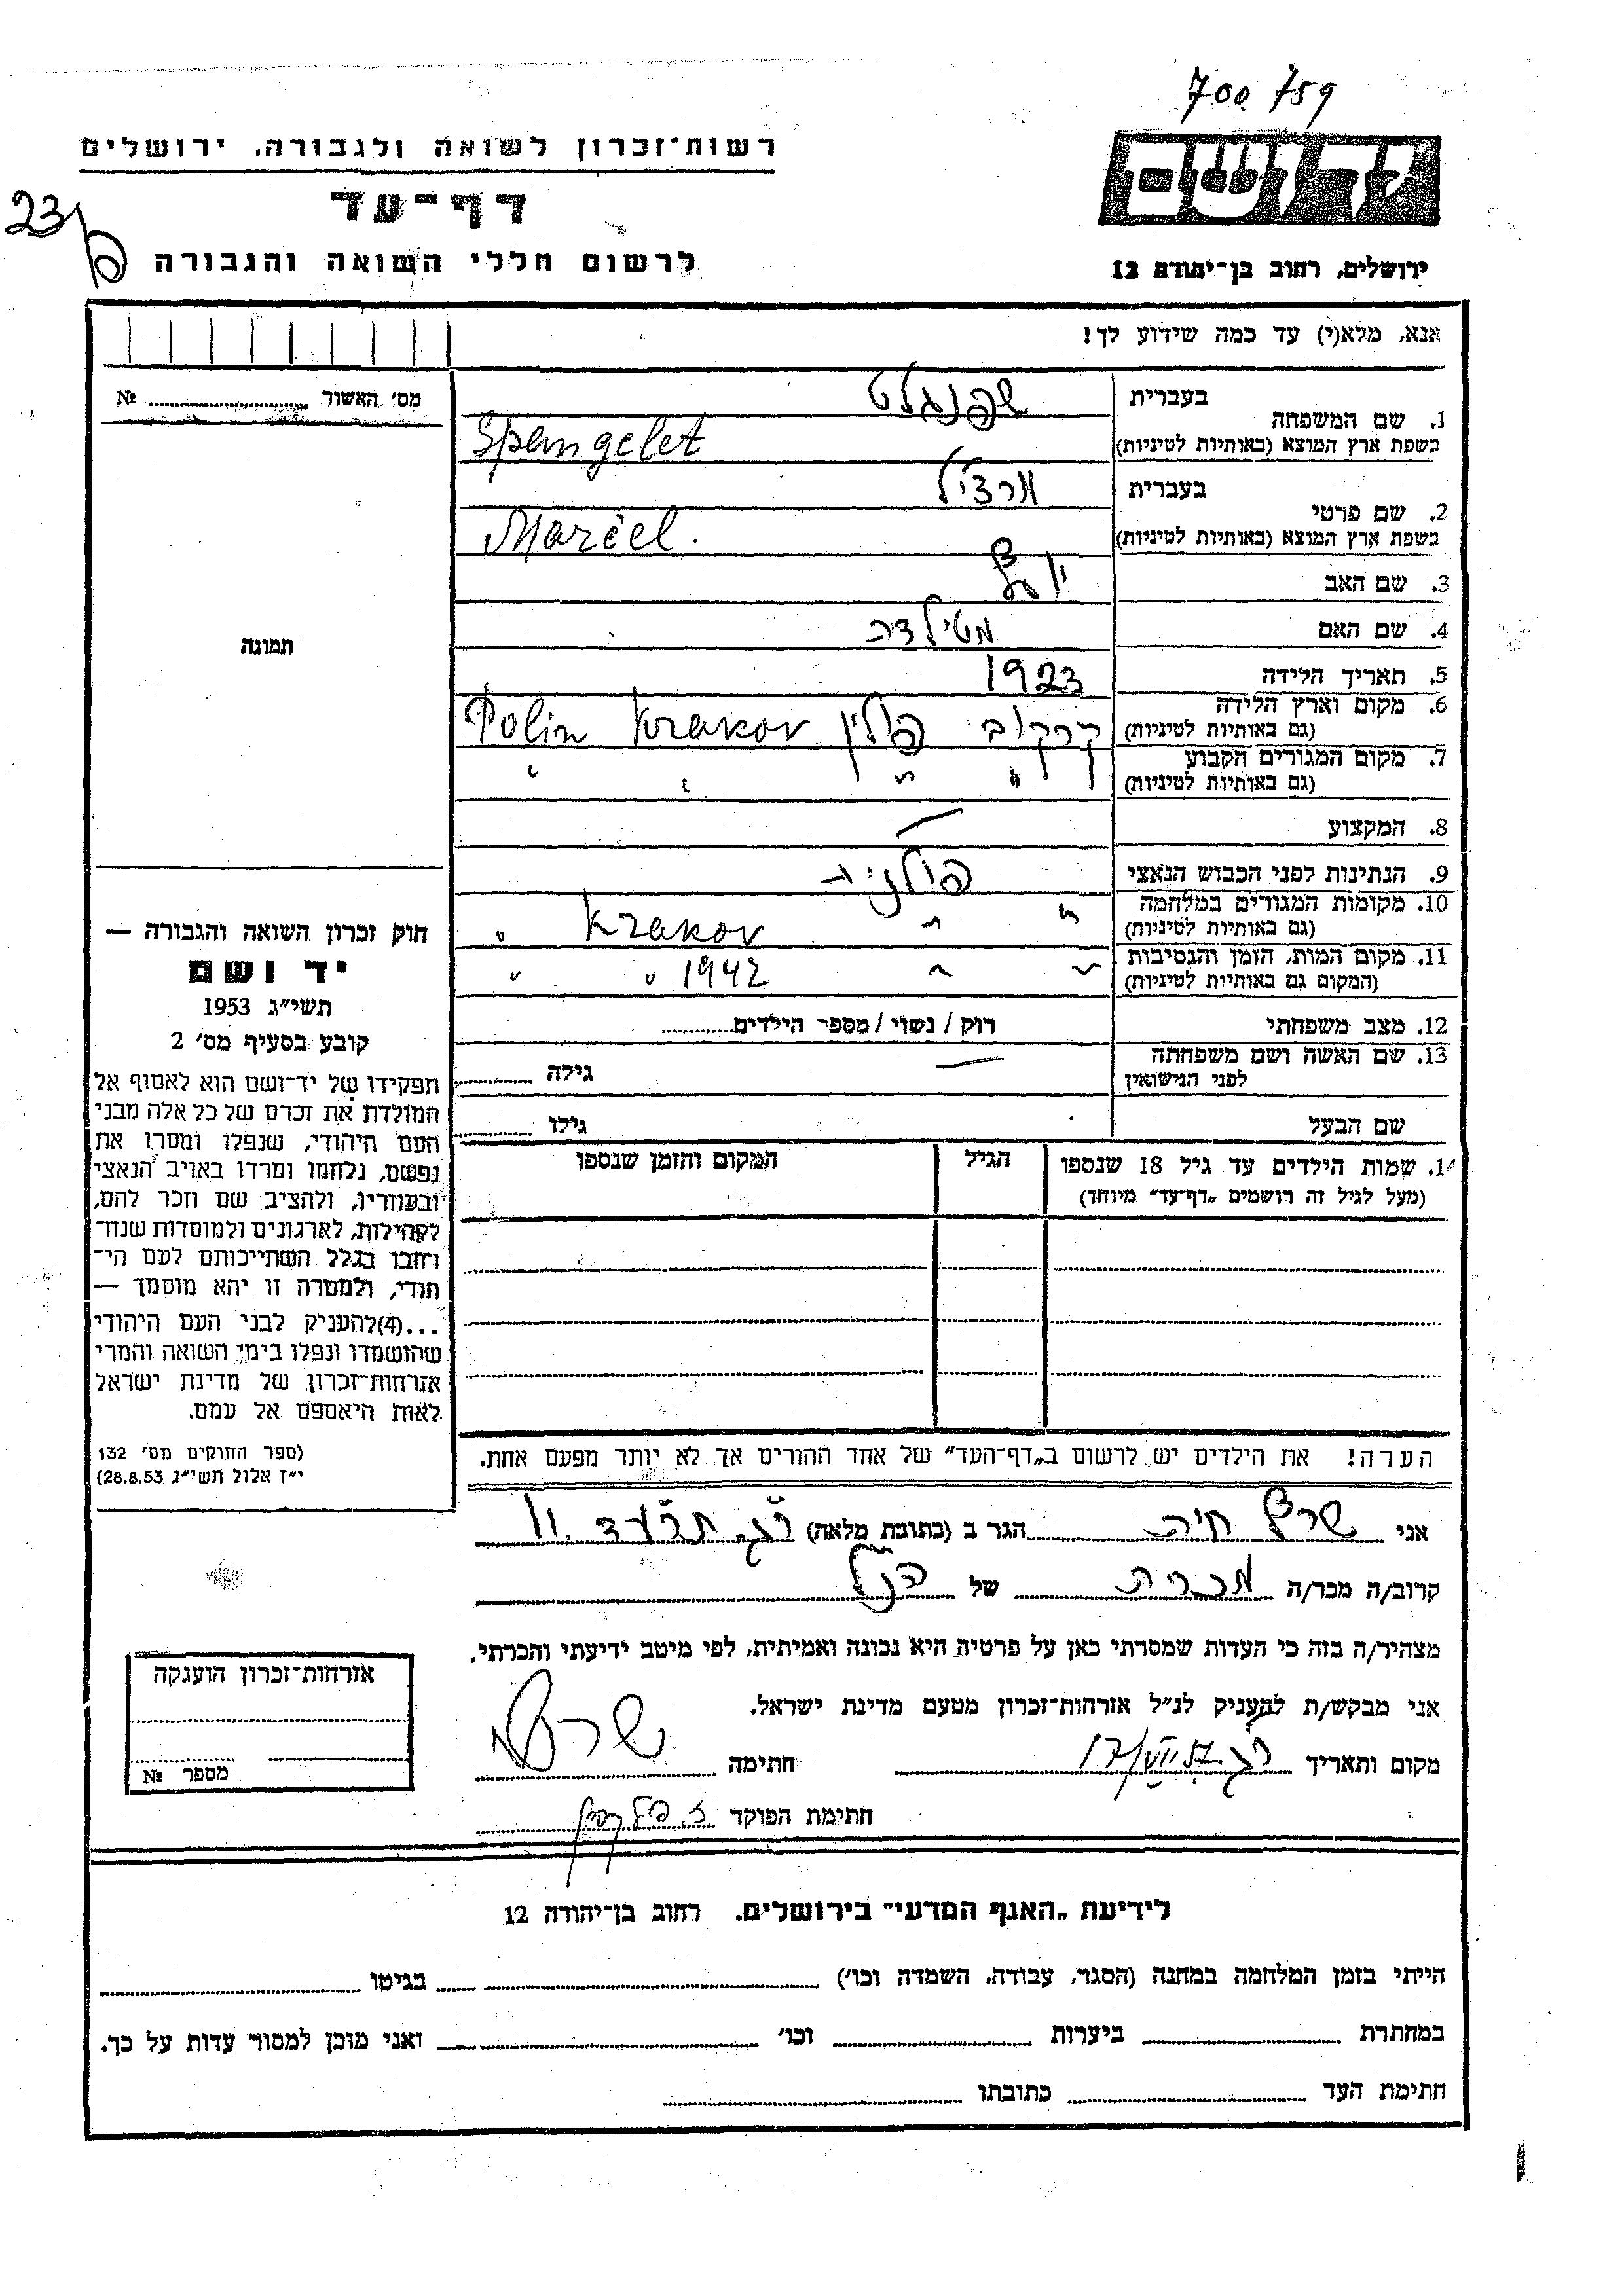 700 759
יד ושם
רשות־זכרון לשואה ולגבורה, ירושלים
דף־עד
23
לרשום חללי השואה והגבורה
ירושלים, רחוב בן־יהודה 12
אנא, מלא(י) עד כמה שידוע לך!
מס׳ האשור № ........
1. שם המשפחה
בעברית שפנגלט
בשפת ארץ המוצא (באותיות לטיניות) Spangelet
2. שם פרטי
בעברית מרציל
בשפת ארץ המוצא (באותיות לטיניות) Marcel.
3. שם האב
4. שם האם מטילדה
5. תאריך הלידה 1923
6. מקום וארץ הלידה
(גם באותיות לטיניות) קרקוב פולין Krakov Polin
7. מקום המגורים הקבוע
(גם באותיות לטיניות) " " " "
8. המקצוע —
9. הנתינות לפני הכבוש הנאצי פולניה
10. מקומות המגורים במלחמה
(גם באותיות לטיניות) " " Krakov "
11. מקום המות, הזמן והנסיבות
(המקום גם באותיות לטיניות) " " 1942 " "
12. מצב משפחתי רוק / נשוי / מספר הילדים........
13. שם האשה ושם משפחתה
לפני הנישואין — גילה ........
שם הבעל גילו ........
תמונה
חוק זכרון השואה והגבורה —
יד ושם
תשי״ג 1953
קובע בסעיף מס׳ 2
תפקידו של יד־ושם הוא לאסוף אל
המולדת את זכרם של כל אלה מבני
העם היהודי, שנפלו ומסרו את
נפשם, נלחמו ומרדו באויב הנאצי
ובעוזריו, ולהציב שם וזכר להם,
לקהילות, לארגונים ולמוסדות שנח־
רחבו בגלל השתייכותם לעם הי־
הודי, ולמטרה זו יהא מוסמך —
...(4)להעניק לבני העם היהודי
שהושמדו ונפלו בימי השואה והמרי
אזרחות־זכרון של מדינת ישראל
לאות היאספם אל עמם.
(ספר החוקים מס׳ 132
י״ז אלול תשי״ג 28.8.53)
14. שמות הילדים עד גיל 18 שנספו
(מעל לגיל זה רושמים „דף־עד״ מיוחד)
הגיל
המקום והזמן שנספו
הערה! את הילדים יש לרשום ב„דף־העד״ של אחד ההורים אך לא יותר מפעם אחת.
אני שרץ חיה הגר ב (כתובת מלאה) ר״ג, תרע״ד 11
קרוב/ה מכר/ה מכרה של הנ״ל
מצהיר/ה בזה כי העדות שמסרתי כאן על פרטיה היא נכונה ואמיתית, לפי מיטב ידיעתי והכרתי.
אני מבקש/ת להעניק לנ״ל אזרחות־זכרון מטעם מדינת ישראל.
מקום ותאריך ר״ג חתימה שרץ
חתימת הפוקד
אזרחות־זכרון הוענקה
מספר №
לידיעת „האגף המדעי״ בירושלים. רחוב בן־יהודה 12
הייתי בזמן המלחמה במחנה (הסגר, עבודה, השמדה וכו׳) ........ בגיטו ........
במחתרת ........ ביערות ........ וכו׳ ........ ואני מוכן למסור עדות על כך.
חתימת העד ........ כתובתו ........